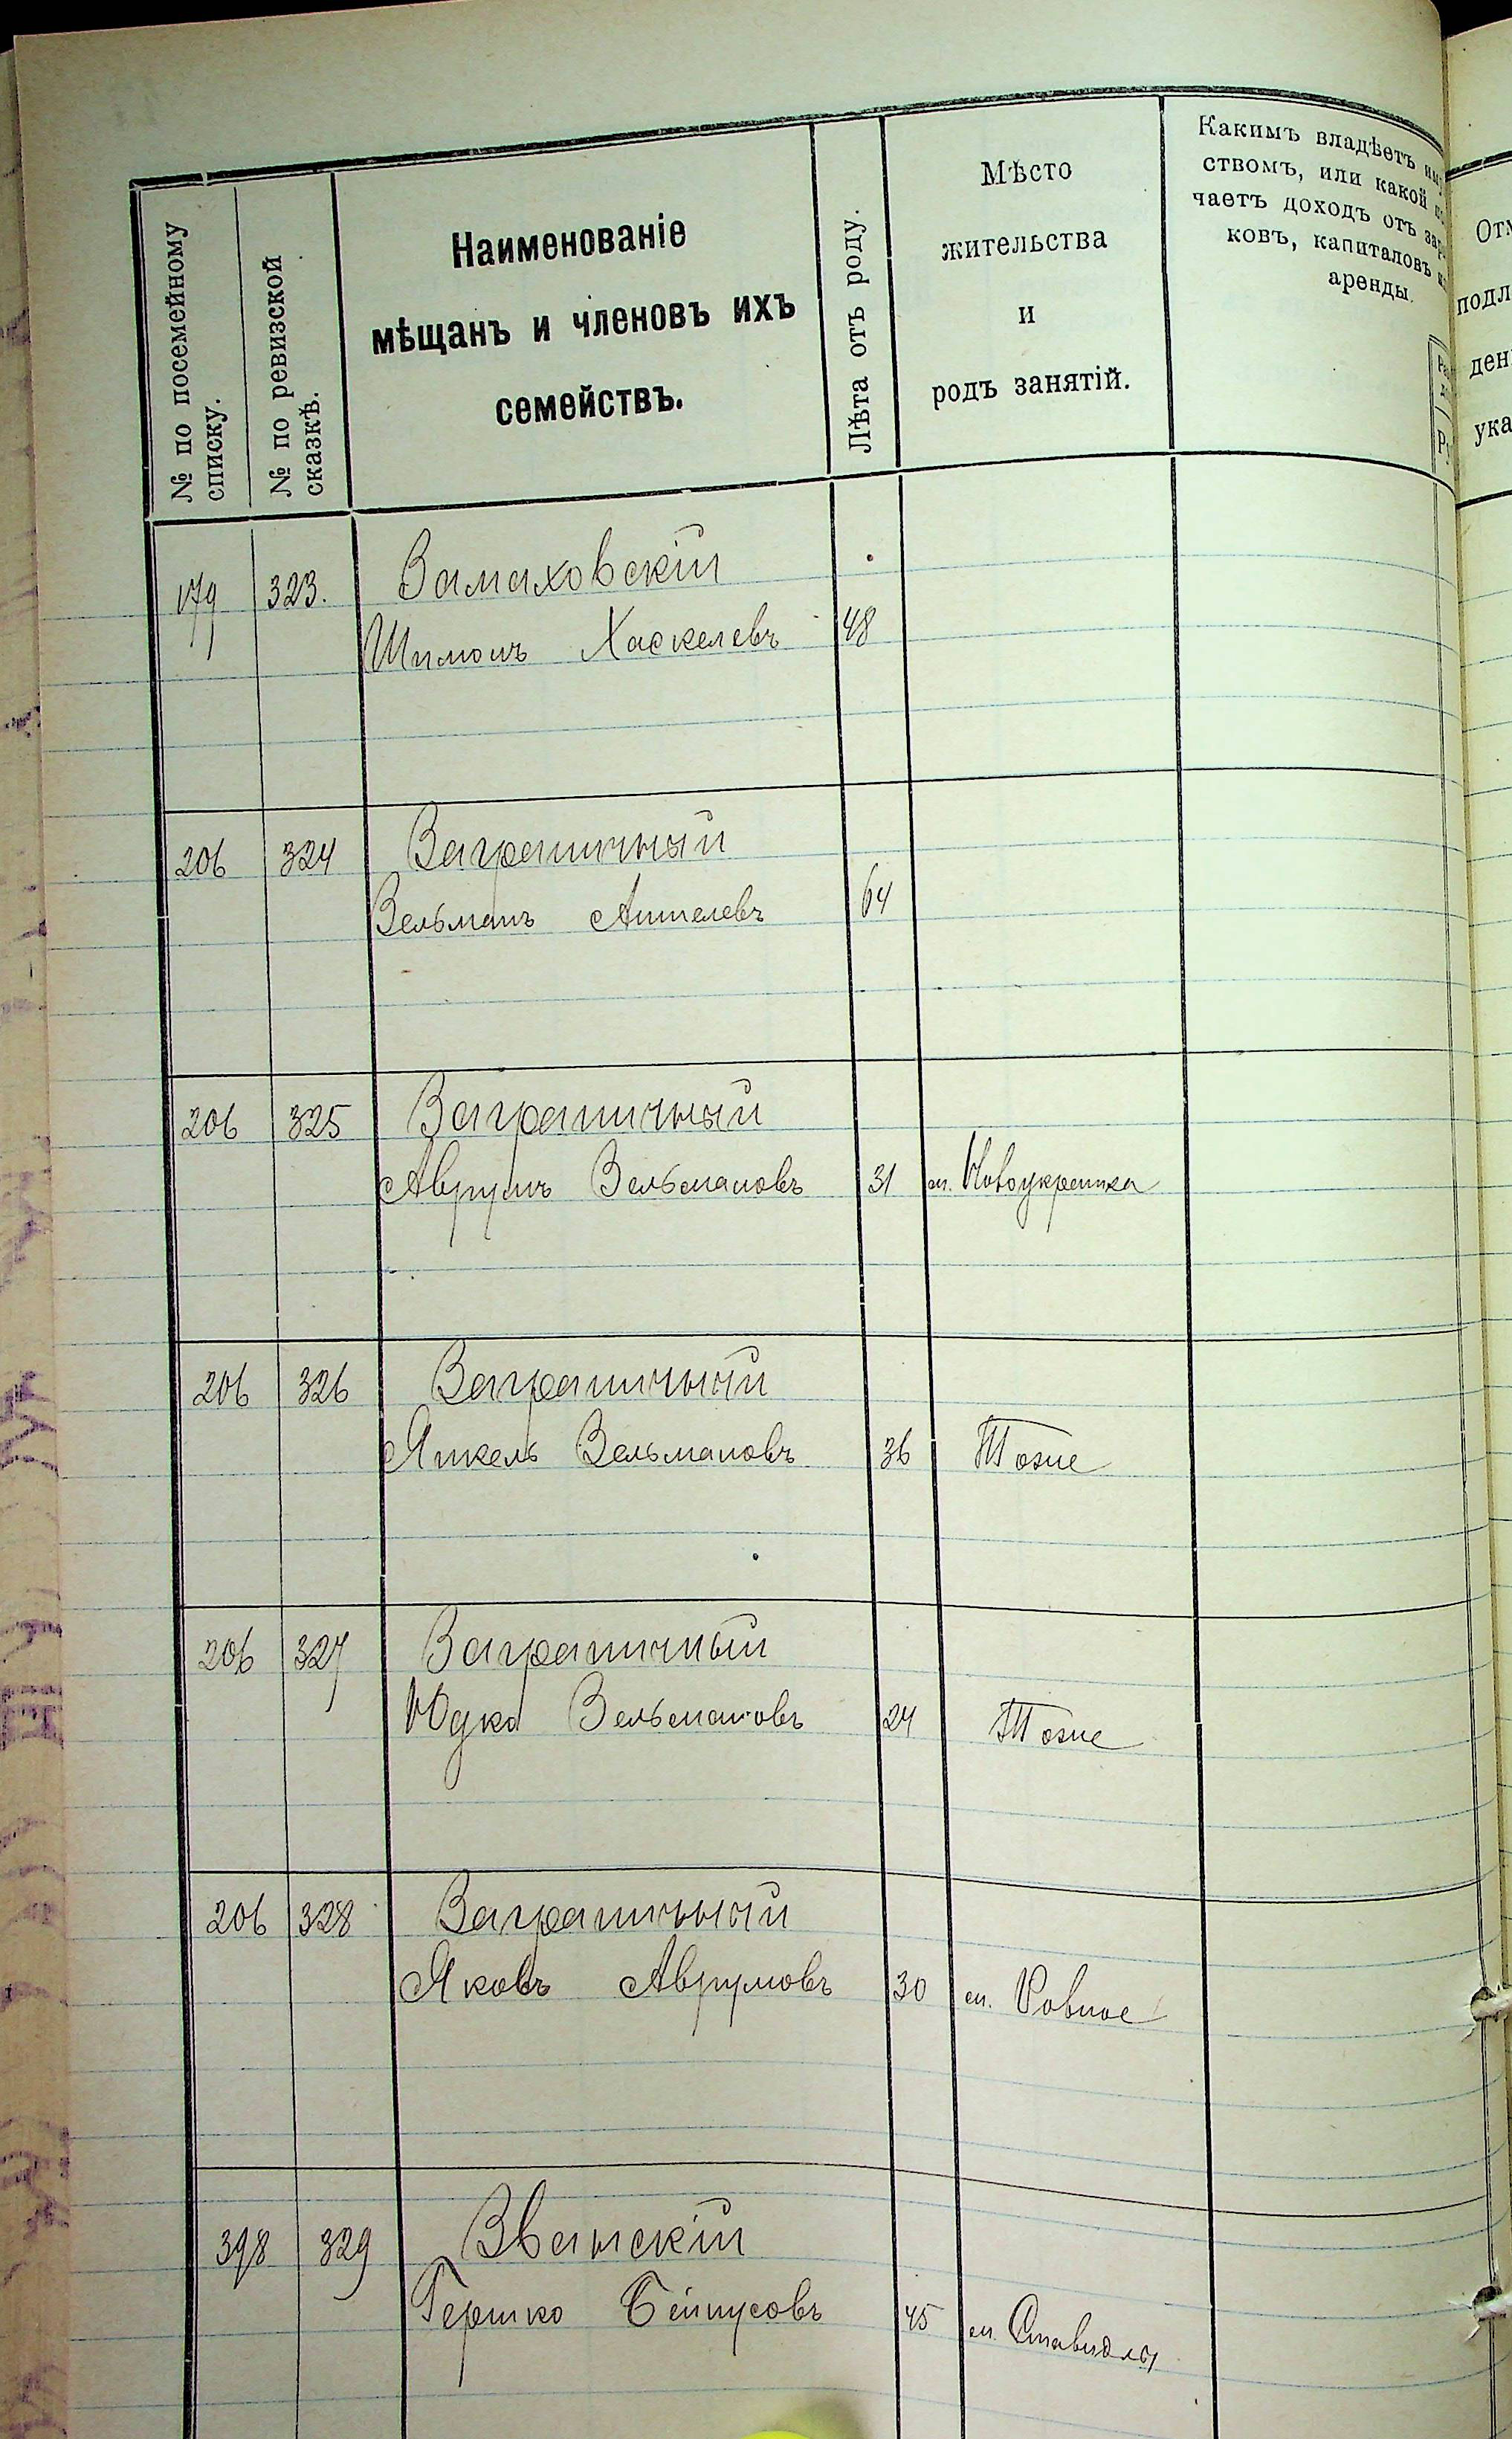 № по посемейному
списку.
№ по ревизской
сказкѣ.
Наименованіе
мѣщанъ и членовъ ихъ
семействъ.
Лѣта отъ роду.
Мѣсто
жительства
и
родъ занятій.
Какимъ владѣетъ
ствомъ, или какой
чаетъ доходъ отъ
ковъ, капиталовъ
аренды.
179 323. Замаховскій
Шимонъ Хаскелевъ 48
206 324 Заграничный
Зельманъ Аншелевъ 64
206 325 Заграничный
Аврумъ Зельмановъ 31 м. Новоукраинка
206 326 Заграничный
Янкель Зельмановъ 36 Тоже
206 327 Заграничный
Юдко Зельмановъ 24 Тоже
206 328 Заграничный
Яковъ Аврумовъ 30 м. Ровное
398 329 Званскій
Гершко Бейнусовъ 45 м. Ставидлы